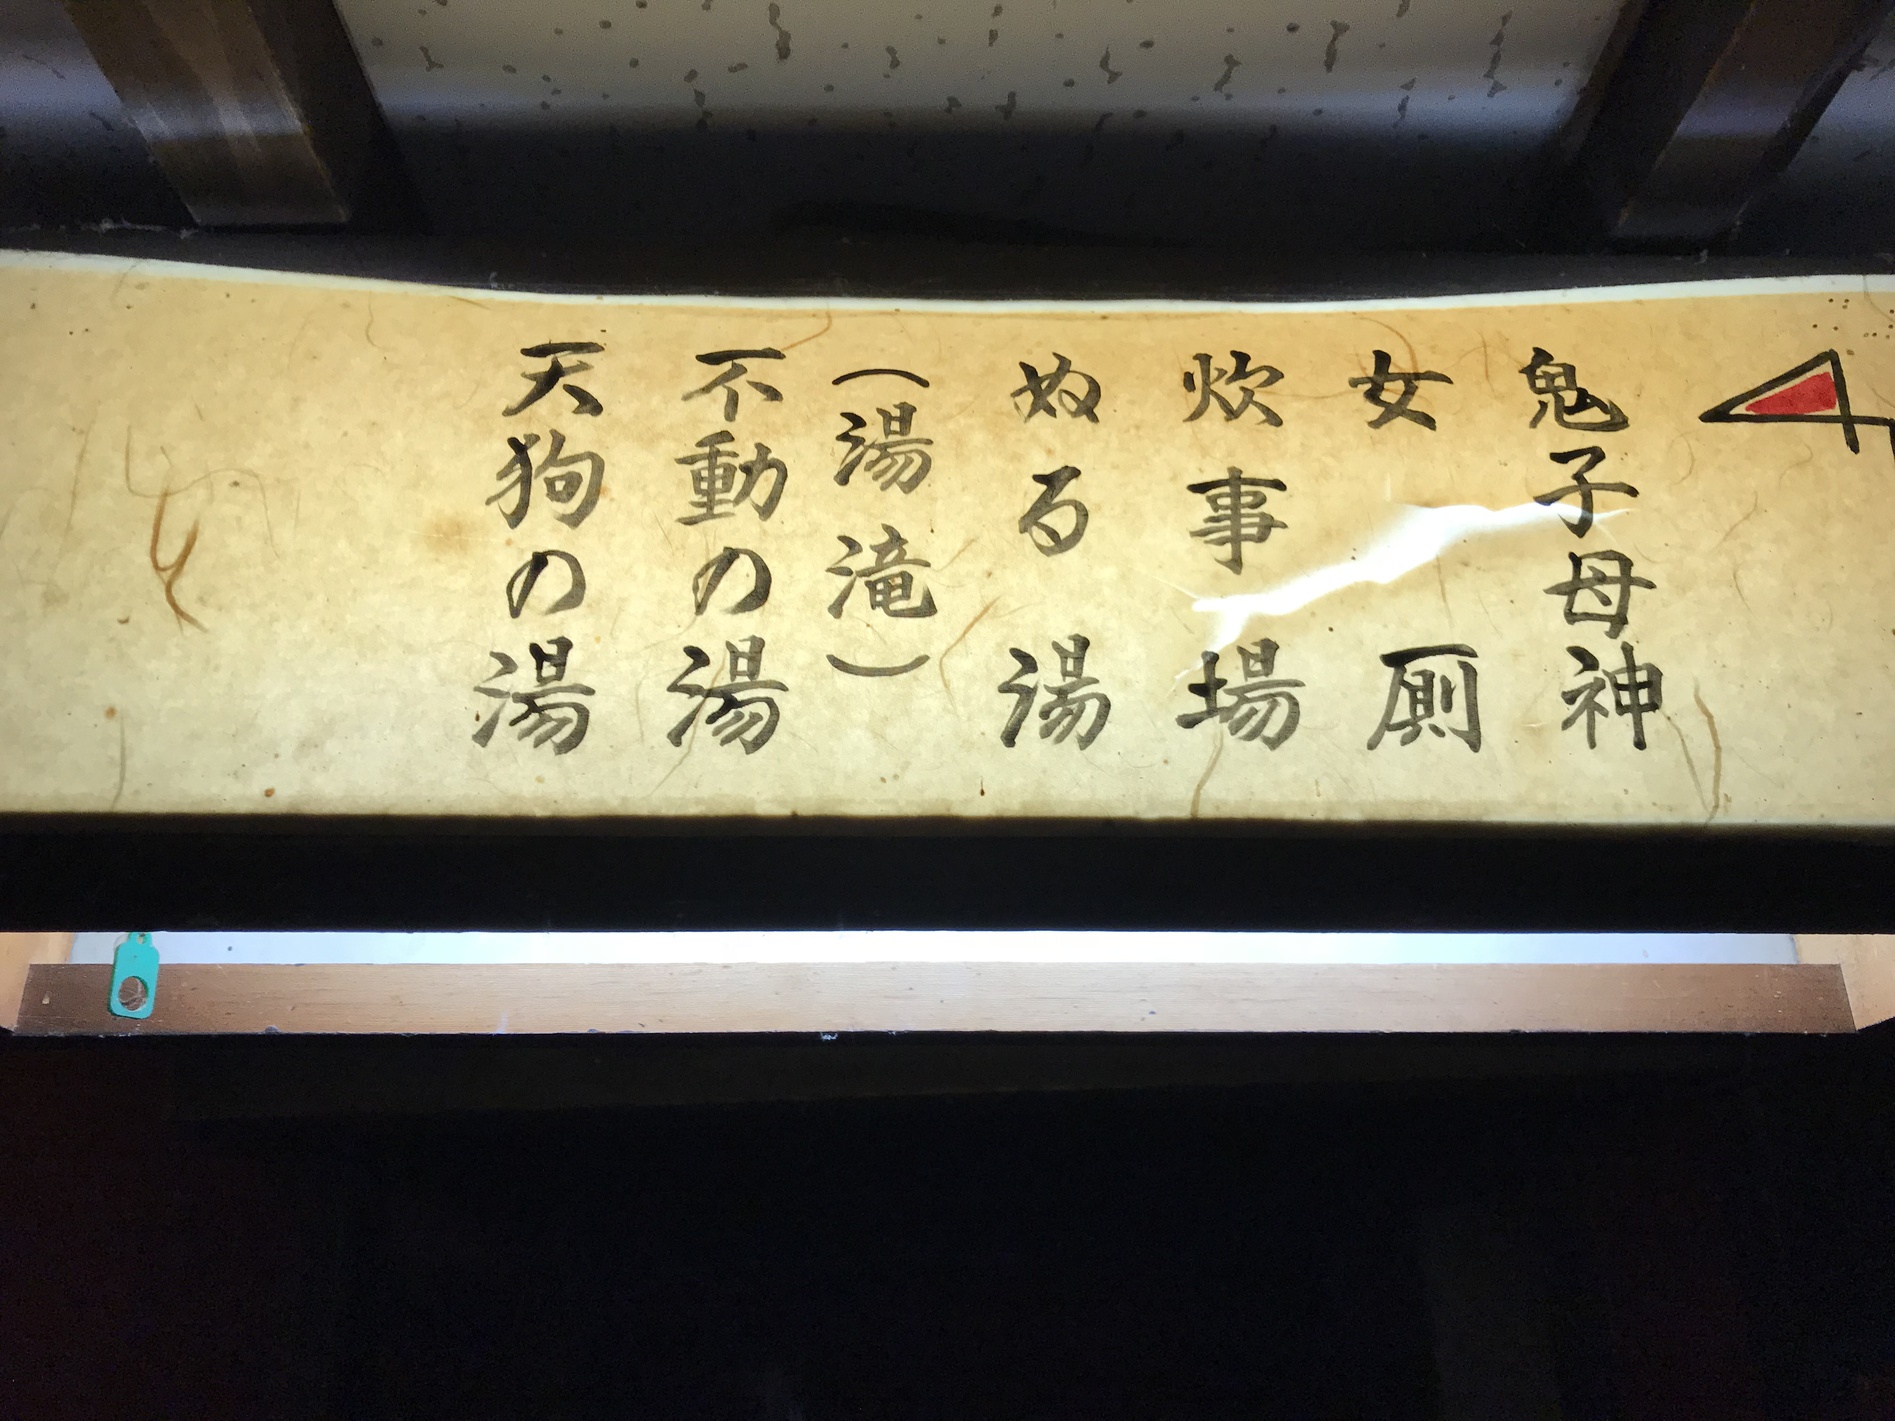 鬼子母神
女厠
炊事場
ぬる湯
(湯滝)
不動の湯
天狗の湯